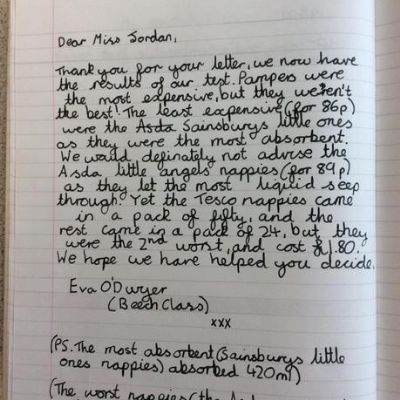 Dear Miss Jordan,
Thank you for your letter, we now have
the results of our test. Pampers were
the most expensive, but they weren't
the best! The least expensive (for 86p)
were the Asda Sainsburys little ones
as they were the most absorbent.
We would definately not advise the
Asda little angels nappies (for 89p)
as they let the most liquid seep
through. Yet the Tesco nappies came
in a pack of fifty, and the
rest came in a pack of 24, but they
were the 2nd worst, and cost £1.80.
We hope we have helped you decide.
Eva O'Dwyer
(Beech Class)
xxx
(PS. The most absorbent (Sainsburys little
ones nappies) absorbed 420ml)
(The worst nappies (the